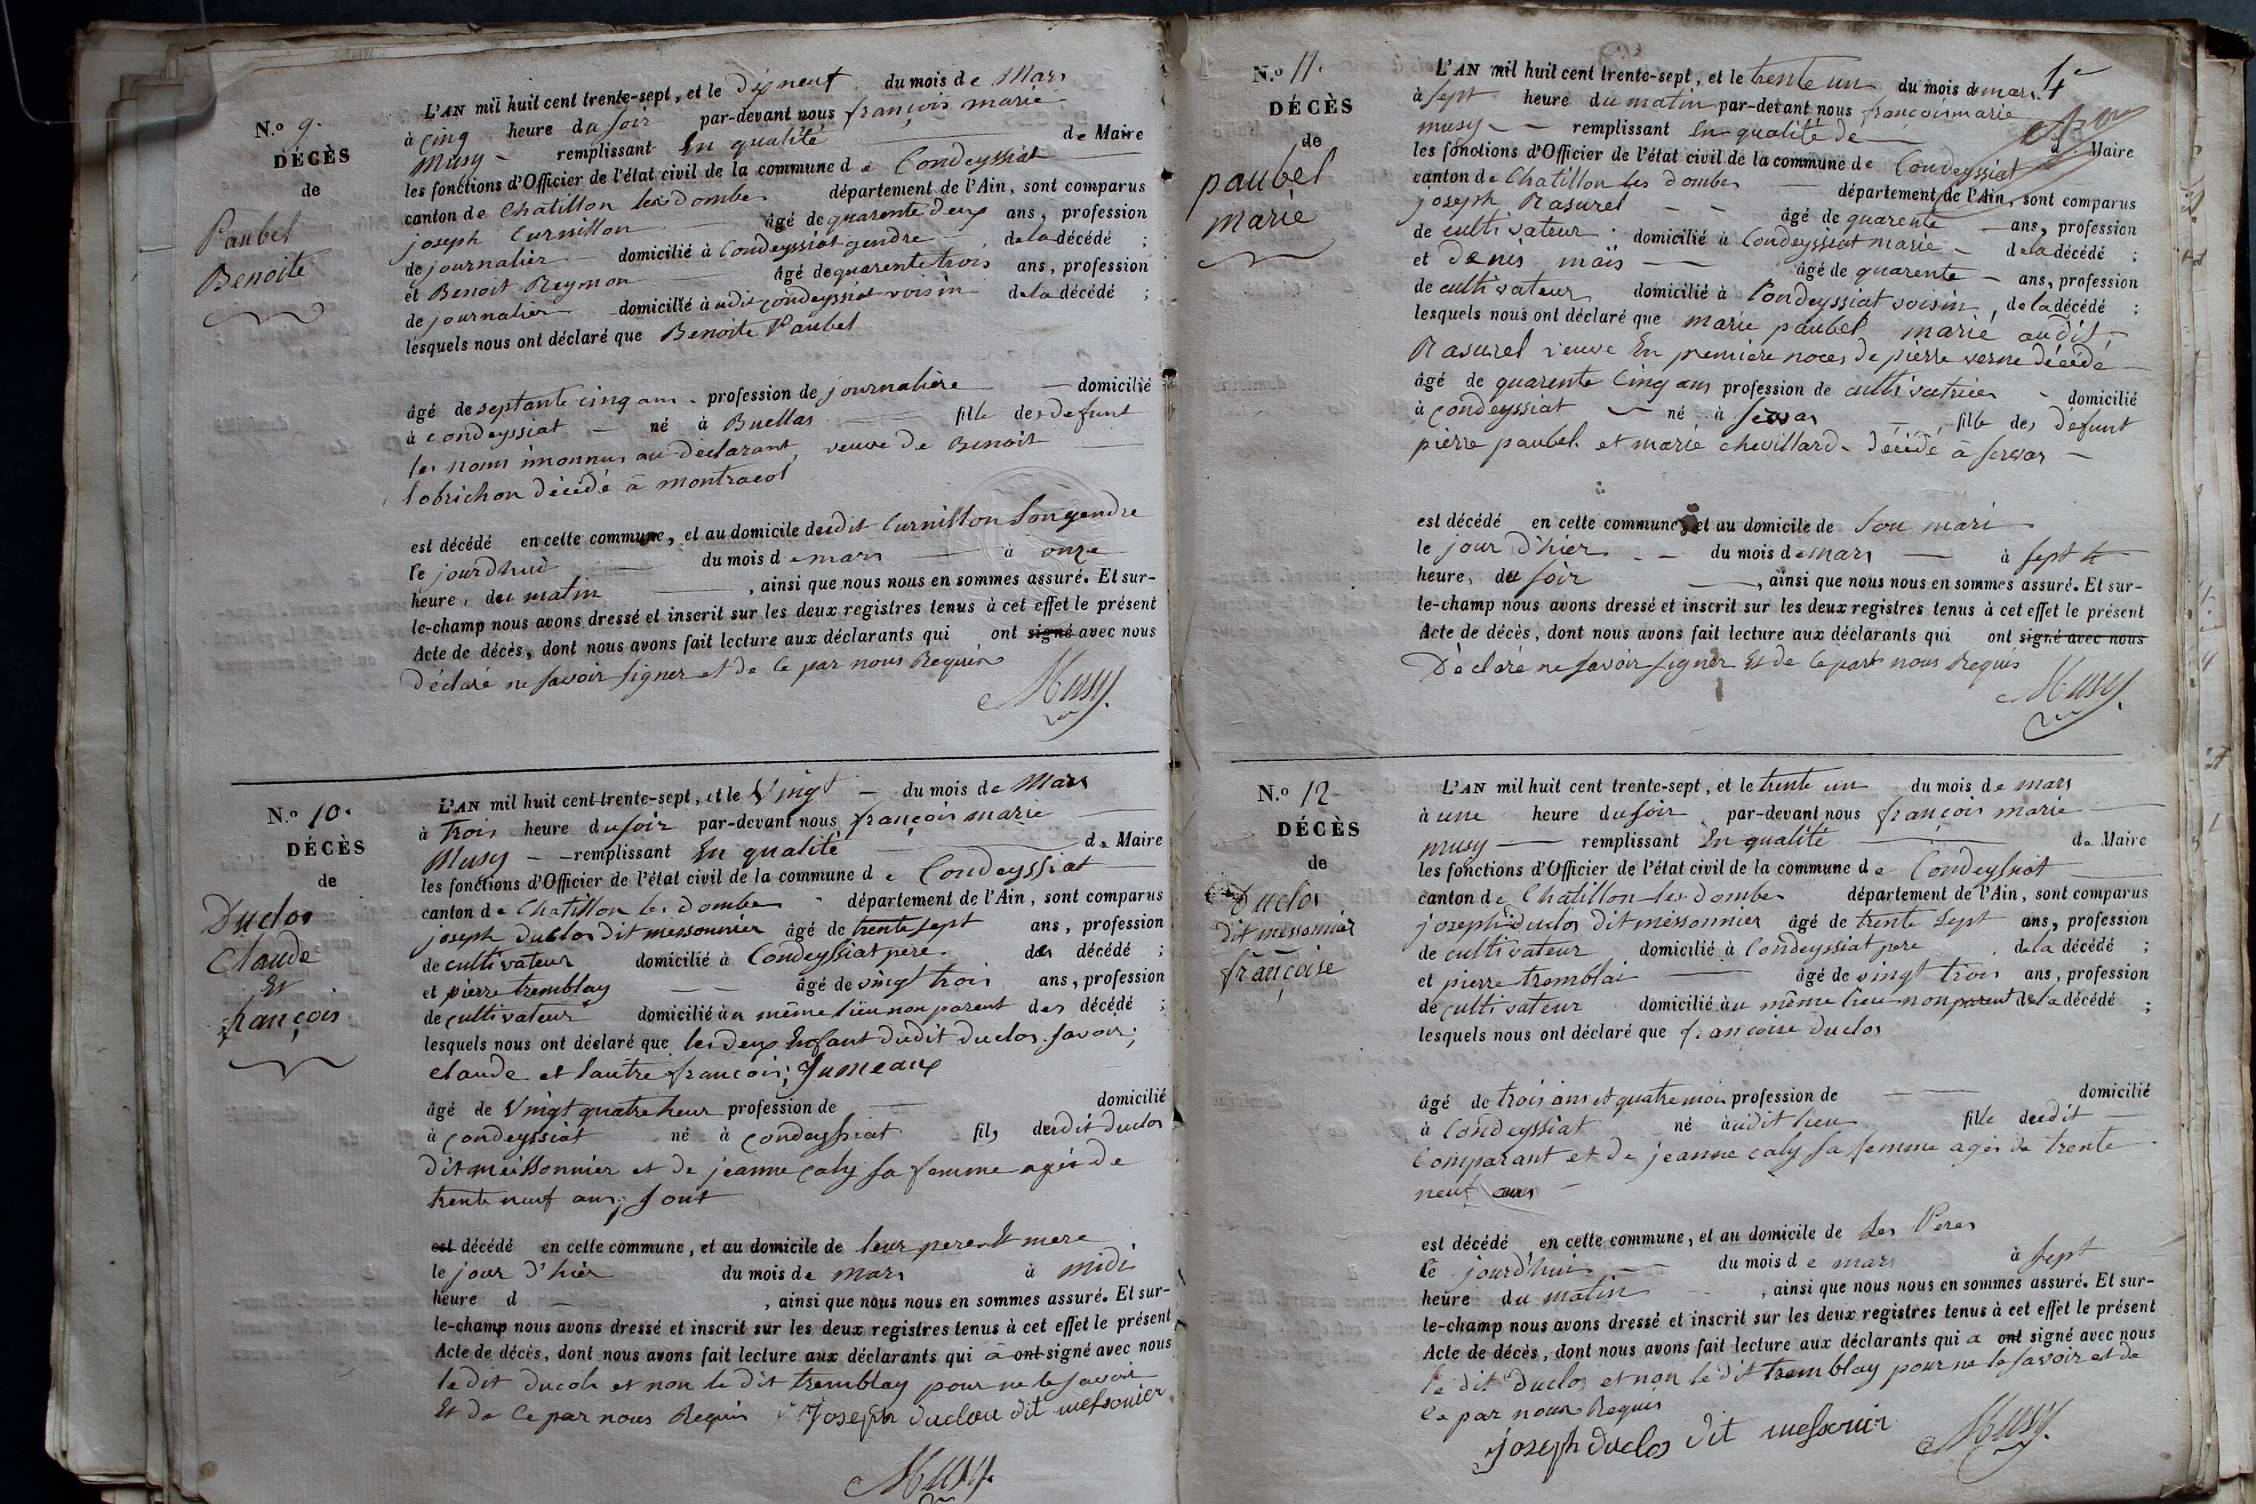 N.o 9.
DÉCÈS
de
Paubel
Benoite
L'AN mil huit cent trente-sept, et le dixneuf du mois de Mars
à cinq heure du soir par-devant nous françois marie
Musy remplissant En qualité de Maire
les fonctions d'Officier de l'état civil de la commune de Condeyssiat
canton de Chatillon les dombes département de l'Ain, sont comparus
joseph Curnillon âgé de quarente deux ans, profession
de journalier domicilié à Condeyssiat gendre de la décédé ;
et Benoit Reymon âgé de quarente trois ans, profession
de journalier domicilié à udit condeyssiat voisin de la décédé ;
lesquels nous ont déclaré que Benoite Paubel
âgé de septante cinq ans profession de journalière domicilié
à condeyssiat né à Buellas fille des defunt
les noms inonnus au déclarant, veuve de Benoit
lobrichon décédé à montracol
est décédé en cette commune, et au domicile dudit Curnillon Son gendre
le jourdhui du mois de mars à onze
heure, du matin , ainsi que nous nous en sommes assuré. Et sur-
le-champ nous avons dressé et inscrit sur les deux registres tenus à cet effet le présent
Acte de décès, dont nous avons fait lecture aux déclarants qui ont signé avec nous
déclaré ne savoir signer et de ce par nous Requis
Musy
N.o 10.
DÉCÈS
de
Duclos
Claude
Et
françois
L'AN mil huit cent trente-sept, et le Vingt du mois de Mars
à trois heure du soir par-devant nous françois marie
Musy remplissant En qualité de Maire
les fonctions d'Officier de l'état civil de la commune de Condeyssiat
canton de Chatillon les dombes département de l'Ain, sont comparus
joseph duclos dit messonnier âgé de trente sept ans, profession
de cultivateur domicilié à Condeyssiat pere des décédé ;
et pierre tremblay âgé de vingt trois ans, profession
de cultivateur domicilié àu même lieu non parent des décédé ;
lesquels nous ont déclaré que les deux Enfant dudit duclos savoir;
claude et lautre françois; Jumeaux
âgé de Vingt quatre heur profession de domicilié
à condeyssiat né à condeyssiat fils dudit duclos
dit meissonnier et de jeanne caly sa femme agés de
trente neuf ans; sont
est décédé en cette commune, et au domicile de leur pere Et mere
le jour d'hier du mois de mars à midi
heure d , ainsi que nous nous en sommes assuré. Et sur-
le-champ nous avons dressé et inscrit sur les deux registres tenus à cet effet le présent
Acte de décès, dont nous avons fait lecture aux déclarants qui à ont signé avec nous
le dit ducols et non le dit tremblay pour ne le savoir
Et de Ce par nous Requis Joseph duclou dit messonier
Musy
N.o 11.
DÉCÈS
de
paubel
marie
L'AN mil huit cent trente-sept, et le trente un du mois de mars
à sept heure du matin par-devant nous françois marie
musy remplissant En qualité de d Maire
les fonctions d'Officier de l'état civil de la commune de Condeyssiat
canton de Chatillon les dombes département de l'Ain, sont comparus
joseph Rasurel âgé de quarente ans, profession
de cultivateur domicilié à Condeyssiat marie de la décédé ;
et denis maïs âgé de quarente ans, profession
de cultivateur domicilié à Condeyssiat voisin de la décédé ;
lesquels nous ont déclaré que marie paubel marié audit
Rasurel veuve En premiere noces de pierre verne décédé
âgé de quarente Cinq ans profession de cultivatrices domicilié
à condeyssiat né à servas fille des defunt
pierre paubel et marie chevillard décédé à servas
est décédé en cette commune, et au domicile de son mari
le jour d'hier du mois de mars à sept
heure, du soir , ainsi que nous nous en sommes assuré. Et sur-
le-champ nous avons dressé et inscrit sur les deux registres tenus à cet effet le présent
Acte de décès, dont nous avons fait lecture aux déclarants qui ont signé avec nous
Déclaré ne savoir signer Et de Ce part nous Requis
Musy
N.o 12
DÉCÈS
de
Duclos
dit messonnier
françoise
L'AN mil huit cent trente-sept, et le trente un du mois de mars
à une heure du soir par-devant nous françois marie
musy remplissant En qualité de Maire
les fonctions d'Officier de l'état civil de la commune de Condeyssiat
canton de Chatillon les dombes département de l'Ain, sont comparus
joseph duclos dit messonnier âgé de trente sept ans, profession
de cultivateur domicilié à Condeyssiat pere de la décédé ;
et pierre tremblai âgé de vingt trois ans, profession
de cultivateur domicilié àu même lieu non parent de la décédé ;
lesquels nous ont déclaré que françoise duclos
âgé de trois ans et quatre mois profession de domicilié
à Condeyssiat né àudit lieu fille dudit
Comparant et de jeanne caly sa femme agés de trente
neuf ans
est décédé en cette commune, et au domicile de ses Peres
le jourd'hui du mois de mars à sept
heure du matin , ainsi que nous nous en sommes assuré. Et sur-
le-champ nous avons dressé et inscrit sur les deux registres tenus à cet effet le présent
Acte de décès, dont nous avons fait lecture aux déclarants qui a ont signé avec nous
le dit Duclos et non le dit tremblay pour ne le savoir et de
Ce par nous Requis
joseph duclos dit messonier
Musy